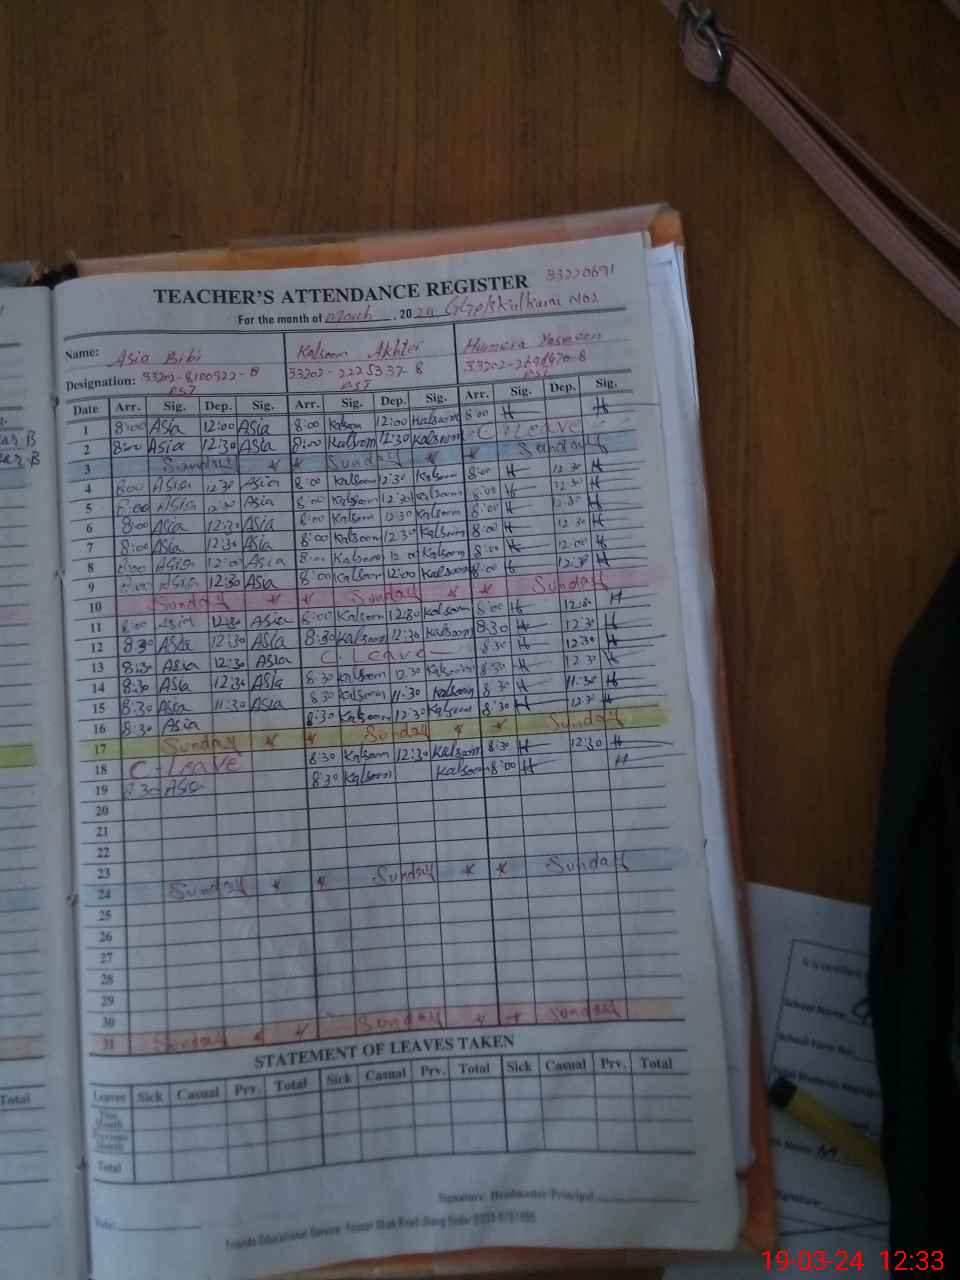 33220691
TEACHER'S ATTENDANCE REGISTER
For the month of March, 2024
Name: Asia Bibi Kalsoom Akhter Humera Yasmeen
Designation: 33202-8100922-8 33202-2225337-8
PST PST PST
Date Arr. Sig. Dep. Sig. Arr. Sig. Dep. Sig. Arr. Sig. Dep. Sig.
1 8:00 Asia 12:00 Asia 8:00 Kalsoom 12:00 Kalsoom 8:00 H H
2 8:00 Asia 12:30 Asia 8:00 Kalsoom 12:30 Kalsoom C. Leave
3 Sunday * * Sunday * * Sunday
4 8:00 Asia 12:30 Asia 8:00 Kalsoom 12:30 Kalsoom 8:00 H 12:30 H
5 8:00 Asia 12:30 Asia 8:00 Kalsoom 12:30 Kalsoom 8:00 H 12:30 H
6 8:00 Asia 12:30 Asia 8:00 Kalsoom 12:30 Kalsoom 8:00 H 12:30 H
7 8:00 Asia 12:30 Asia 8:00 Kalsoom 12:30 Kalsoom 8:00 H 12:30 H
8 8:00 Asia 12:00 Asia 8:00 Kalsoom 12:00 Kalsoom 8:00 H 12:00 H
9 8:00 Asia 12:30 Asia 8:00 Kalsoom 12:00 Kalsoom 8:00 H 12:30 H
10 Sunday * * Sunday * * Sunday
11 8:00 Asia 12:30 Asia 8:00 Kalsoom 12:30 Kalsoom 8:00 H 12:30 H
12 8:30 Asia 12:30 Asia 8:30 Kalsoom 12:30 Kalsoom 8:30 H 12:30 H
13 8:30 Asia 12:30 Asia C. Leave 8:30 H 12:30 H
14 8:30 Asia 12:30 Asia 8:30 Kalsoom 12:30 Kalsoom 8:30 H 12:30 H
15 8:30 Asia 11:30 Asia 8:30 Kalsoom 11:30 Kalsoom 8:30 H 11:30 H
16 8:30 Asia 8:30 Kalsoom 12:30 Kalsoom 8:30 H 12:30 H
17 Sunday * * Sunday * * Sunday
18 C-Leave 8:30 Kalsoom 12:30 Kalsoom 8:30 H 12:30 H
19 8:30 Asia 8:30 Kalsoom Kalsoom 8:00 H H
20
21
22
23
24 Sunday * * Sunday * * Sunday
25
26
27
28
29
30
31 Sunday * * Sunday * * Sunday
STATEMENT OF LEAVES TAKEN
Leaves Sick Casual Prv. Total Sick Casual Prv. Total Sick Casual Prv. Total
This Month
Previous Month
Total
Signature: Headmaster/Principal
Date:
Friends Educational Service
Total
It is certified
School Name
School Form No.
Total Students
Signature
19-03-24 12:33